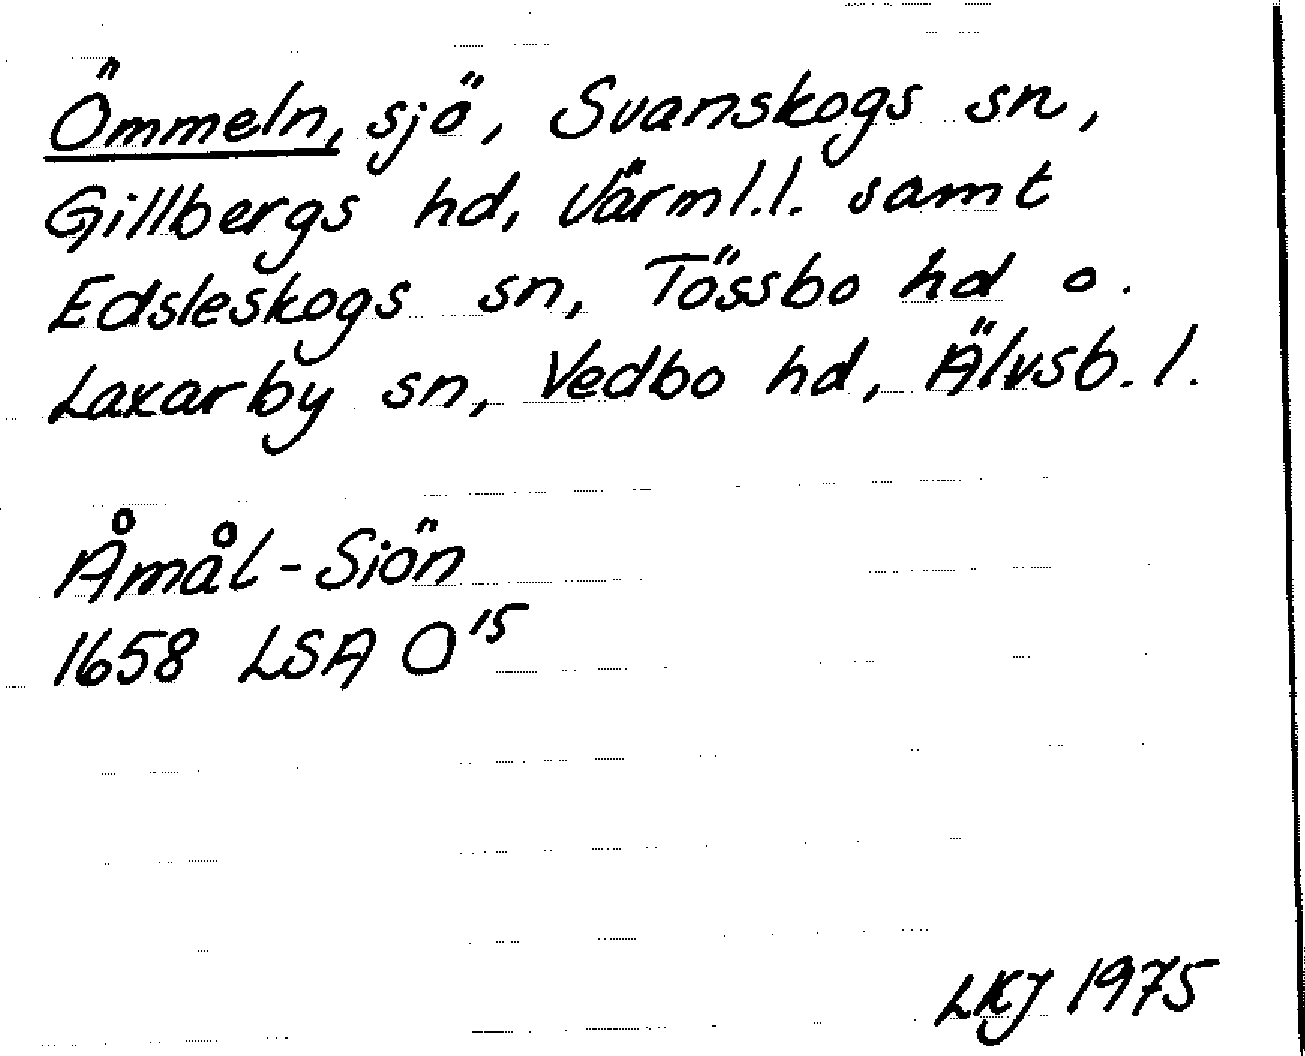 Ömmeln, sjö, Svanskogs sn,
Gillbergs hd, Värml.l. samt
Edsleskogs sn, Tössbo hd o.
Laxarby sn, Vedbo hd, Älvsb. l.
Åmål-Siön
1658 LSA O15
LKJ 1975